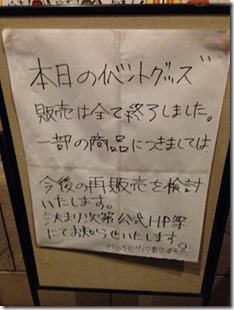 本日のイベントグッズ
販売は全て終了しました。
一部の商品につきましては
今後の再販売を検討
いたします。
決まり次第公式HP等
にてお知らせいたします。